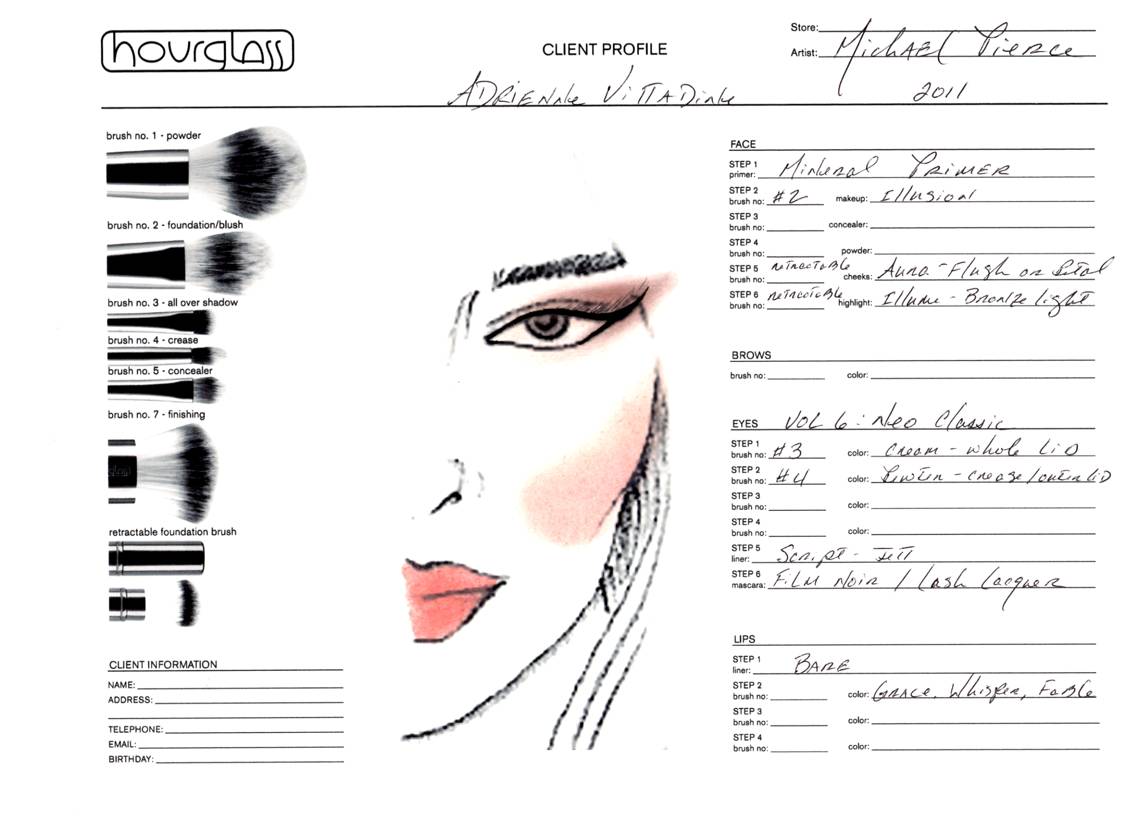 hourglass
CLIENT PROFILE
Store:
Artist: Michael Pierce
2011
Adrienne Vittadini
brush no. 1 - powder
brush no. 2 - foundation/blush
brush no. 3 - all over shadow
brush no. 4 - crease
brush no. 5 - concealer
brush no. 7 - finishing
retractable foundation brush
CLIENT INFORMATION
NAME:
ADDRESS:
TELEPHONE:
EMAIL:
BIRTHDAY:
FACE
STEP 1
primer: Mineral Primer
STEP 2
brush no: #2 makeup: Illusion
STEP 3
brush no: concealer:
STEP 4
brush no: powder:
STEP 5 retractable
brush no: cheeks: Aura - Flush or Petal
STEP 6 retractable
brush no: highlight: Illume - Bronze light
BROWS
brush no: color:
EYES Vol 6: Neo Classic
STEP 1
brush no: #3 color: Cream - whole lid
STEP 2
brush no: #4 color: Pewter - crease/outer lid
STEP 3
brush no: color:
STEP 4
brush no: color:
STEP 5
liner: Script - Jett
STEP 6
mascara: Film Noir / Lash Lacquer
LIPS
STEP 1
liner: Bare
STEP 2
brush no: color: Grace, Whisper, Fable
STEP 3
brush no: color:
STEP 4
brush no: color: